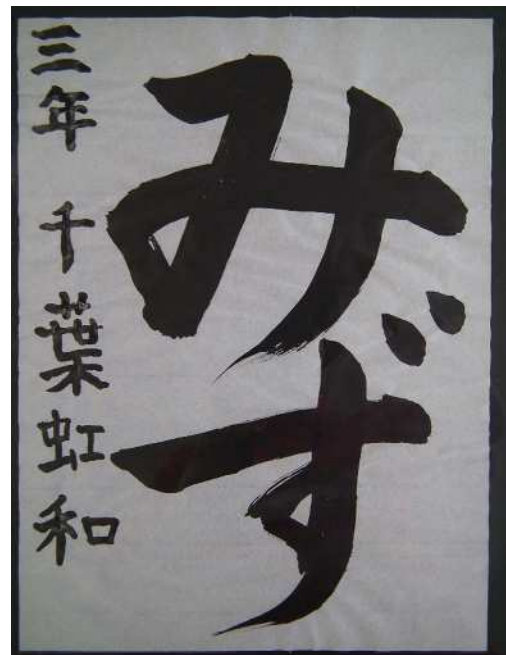 みず
三年 千葉虹和